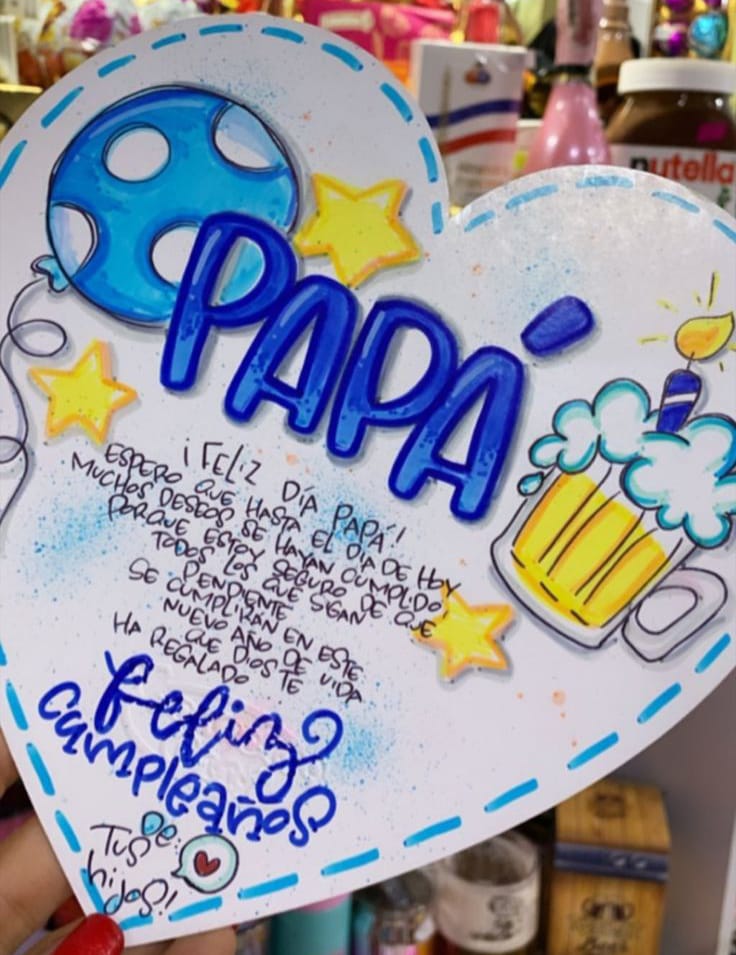 PAPÁ
¡FELIZ DÍA PAPÁ!
ESPERO QUE HASTA EL DÍA DE HOY
MUCHOS DESEOS SE HAYAN CUMPLIDO,
PORQUE ESTOY SEGURO DE QUE
TODOS LOS QUE SEAN
PENDIENTE
SE CUMPLIRÁN EN ESTE
NUEVO AÑO DE VIDA
QUE DIOS TE
HA REGALADO...
feliz
cumpleaños
De:
Tus
hijos!
nutella